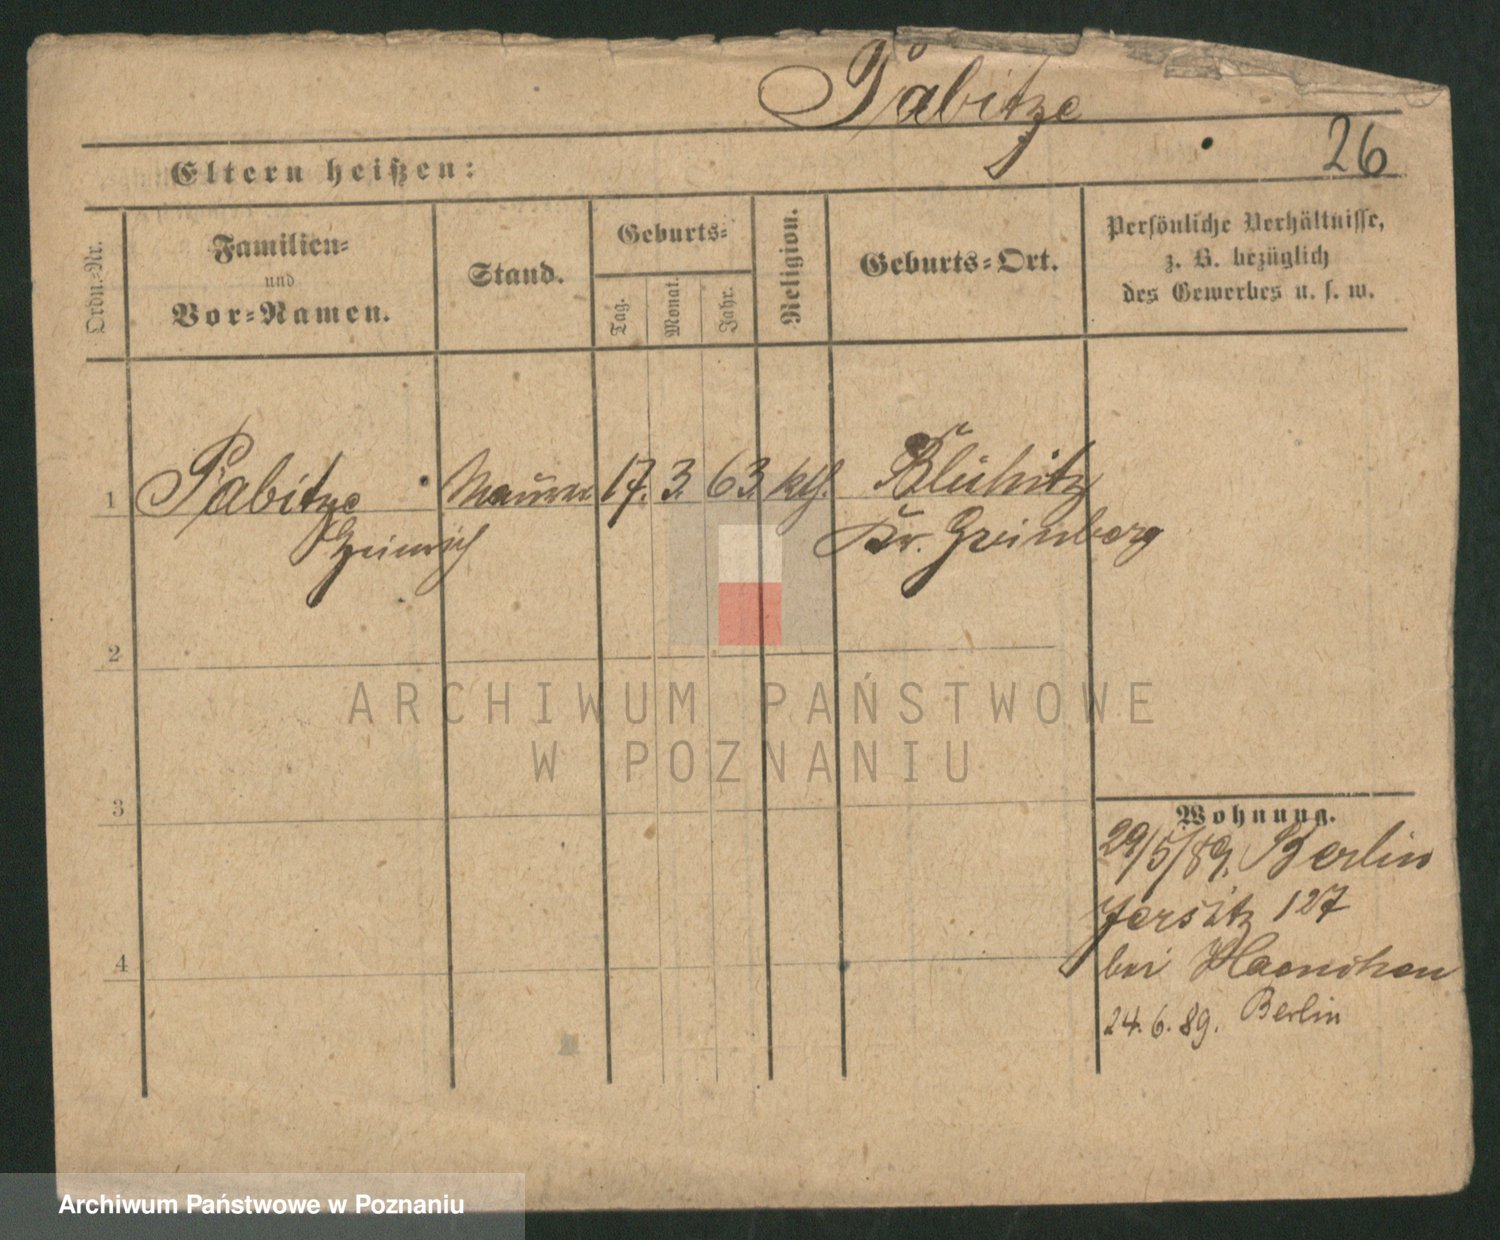 Pabitze
26
Eltern heißen:
Ordn.-Nr.
Familien-
und
Vor-Namen.
Stand.
Geburts-
Tag.
Monat.
Jahr.
Religion.
Geburts-Ort.
Persönliche Verhältnisse,
z. B. bezüglich
des Gewerbes u. s. w.
1 Pabitze Maurer 17. 3. 63. kth.
Heinrich Kr. Grünberg
2
ARCHIWUM PAŃSTWOWE
W POZNANIU
3
4
Wohnung.
29/5/89. Berlin
Jersitz 127
bei
24. 6. 89. Berlin
Archiwum Państwowe w Poznaniu